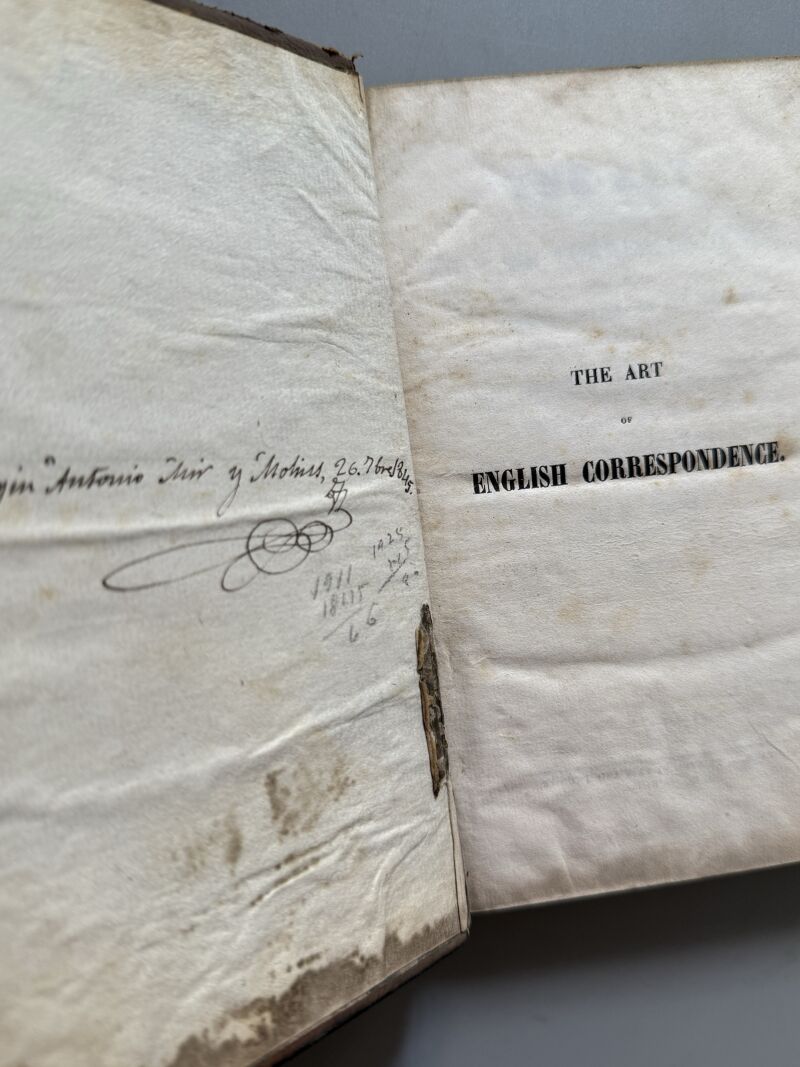 Antonio Mir y Molins, 26. 7bre 1845.
1911
1845
66
1925
THE ART
OF
ENGLISH CORRESPONDENCE.